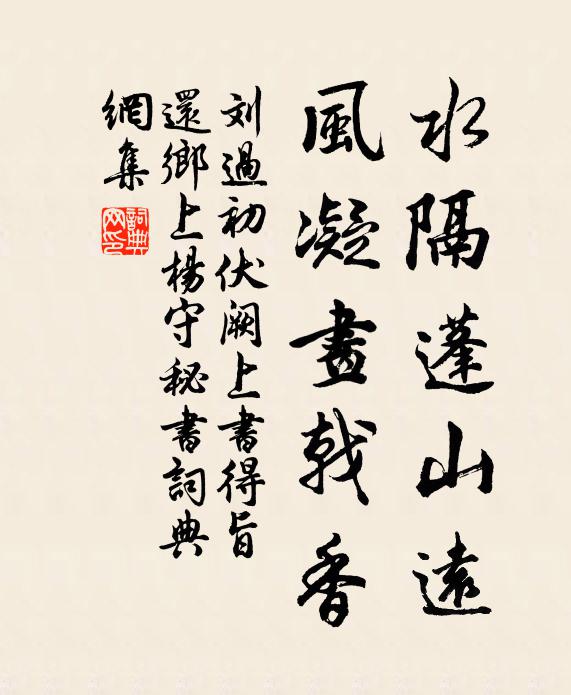 水隔蓬山遠
風凝畫戟香
刘過初伏阙上書得旨
還鄉上楊守秘書詞典
網集
詞典网印